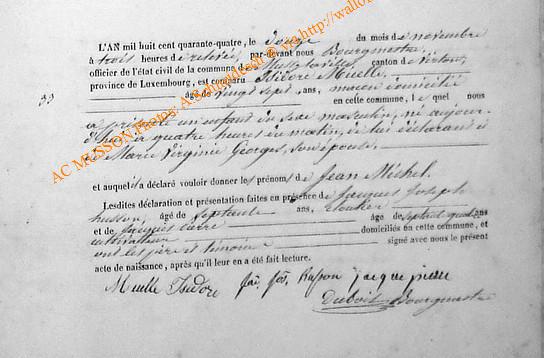 L'AN mil huit cent quarante-quatre, le douze du mois de novembre
à trois heures de relevée, par-devant nous Bourgmestre
officier de l'état civil de la commune de Mussy-la-ville, canton de Virton,
province de Luxembourg, est comparu Isidore Muelle
33
âgé de vingt sept ans, maçon domicilié
en cette commune, le quel nous
a présenté un enfant du sexe masculin, né aujour-
d'hui à quatre heures du matin, de lui déclarant et
de Marie Virginie Georges, son épouse,
et auquel il a déclaré vouloir donner les prénoms de Jean Michel.
Lesdites déclaration et présentation faites en présence de Jacques Joseph
husson, âgé de septante ans, cloutier âge de septante quatre ans
et de Jacques pierre domiciliés en cette commune, et
cultivateur
ont les père et témoins signé avec nous le présent
acte de naissance, après qu'il leur en a été fait lecture.
Muelle Isidore jac. jos. husson jacque pierre
Dubois Bourgmestre
AC MUSSON Photos: via http://wallo